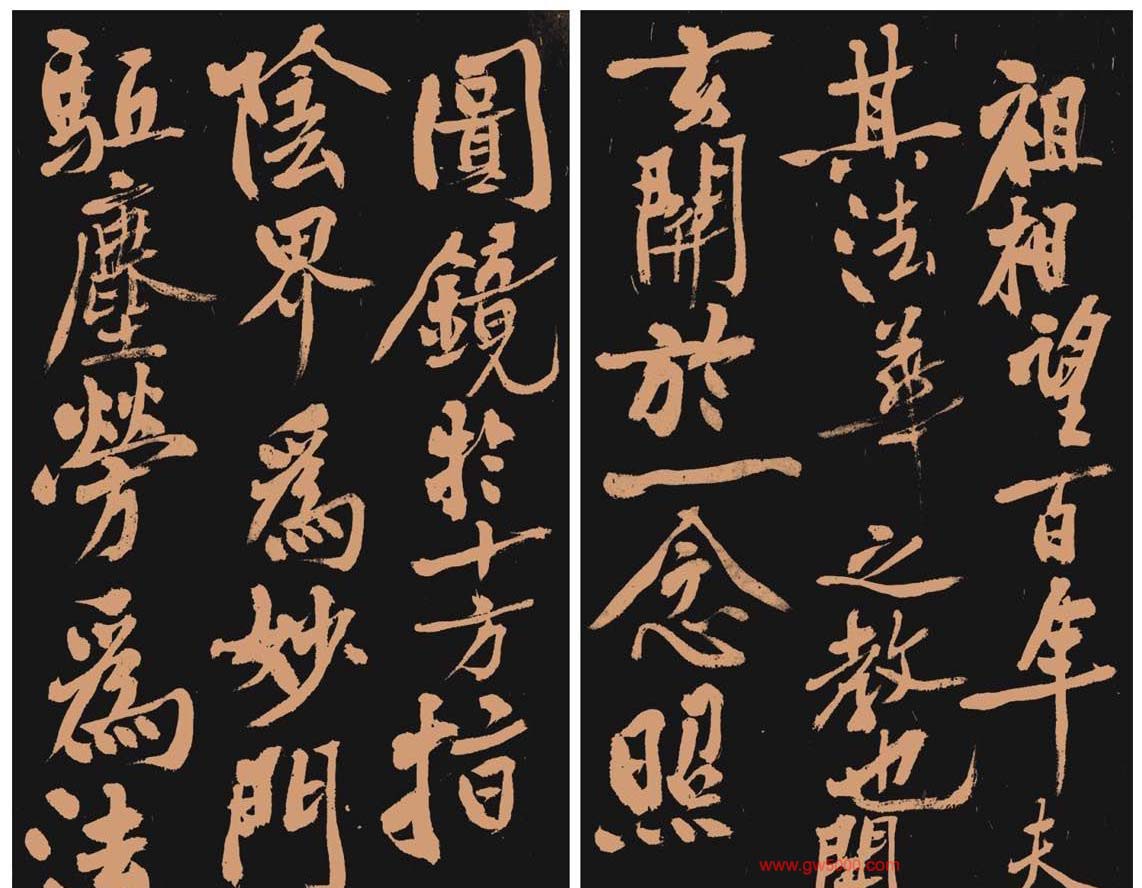 祖相望百年夫
其法華之教也開
玄關於一念照
圓鏡於十方指
陰界為妙門
駈塵勞為法
www.gw5000.com